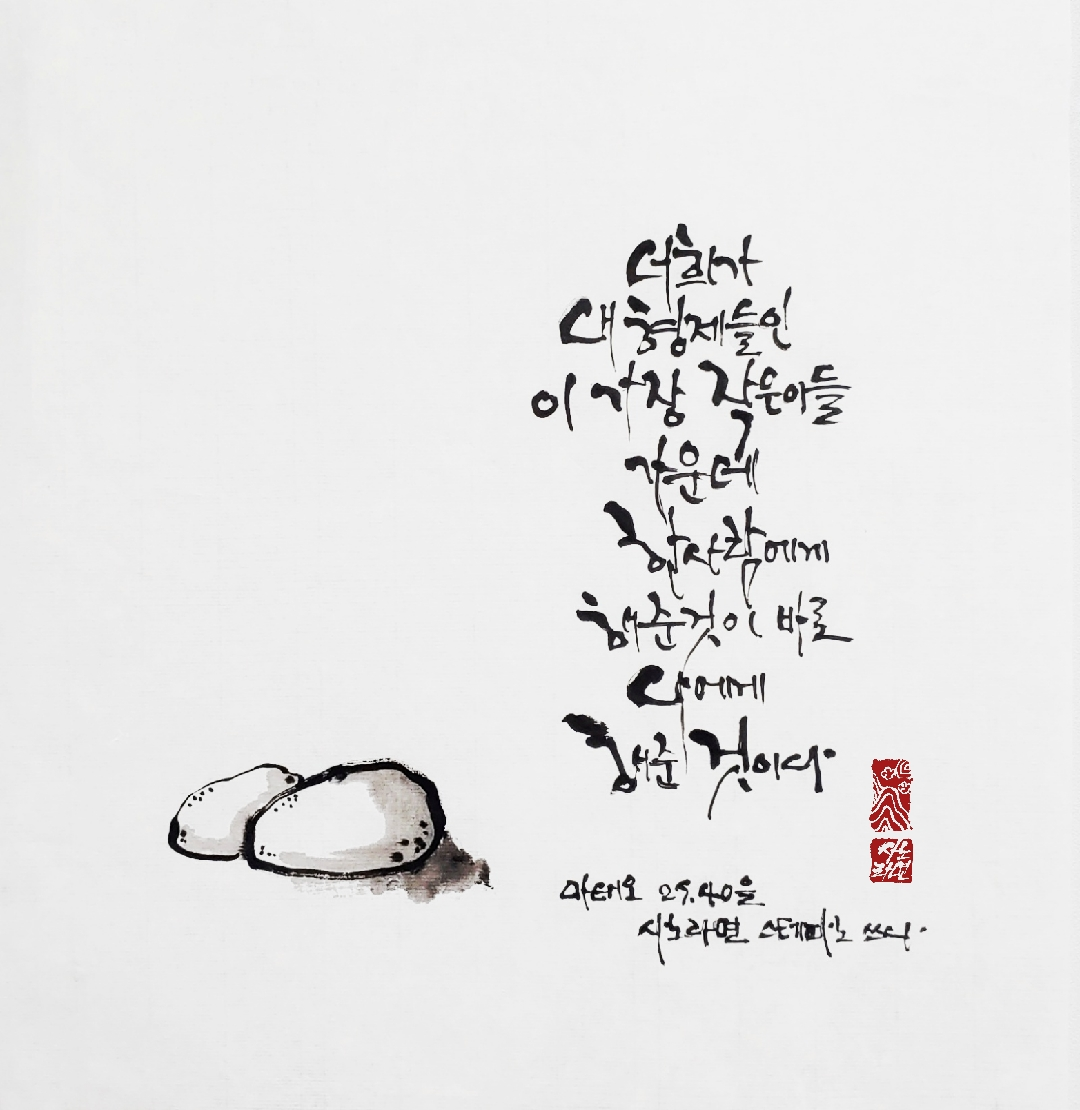 너희가
내 형제들인
이 가장 작은이들
가운데
한사람에게
해준것이 바로
나에게
해준 것이다.
마태오 25.40을
시노라면 스테파노 쓰다.